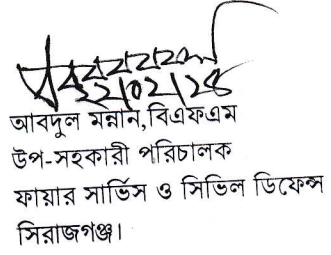 আবদুল মন্নান,বিএফএম
উপ-সহকারী পরিচালক
ফায়ার সার্ভিস ও সিভিল ডিফেন্স
সিরাজগঞ্জ।